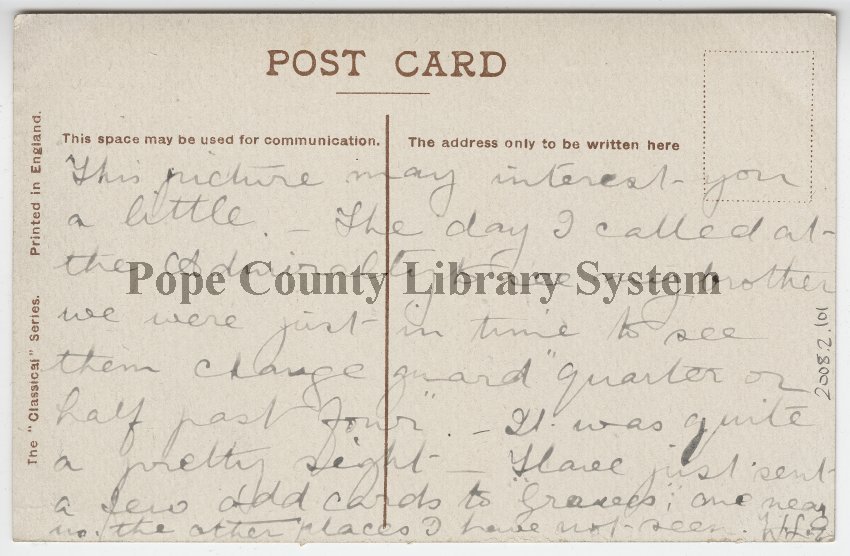 POST CARD
This space may be used for communication.
The address only to be written here
The "Classical" Series. Printed in England.
This picture may interest you
a little. — The day I called at
the Admiralty to see my brother
we were just in time to see
them change guard "quarter or
half past four" — It was quite
a pretty sight — Have just sent
a few odd cards to "Graves"; one near
no. the other places I have not seen.
Pope County Library System
2008.2.101